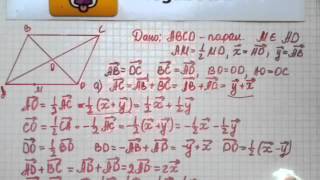 B C
O
A M D
Дано: ABCD – парал. M ∈ AD
AM = ½ MD, x⃗ = AD, y⃗ = AB
AB = DC BC = AD, BO = OD, AO = OC
а) AC = AB + BC = AB + AD = y⃗ + x⃗
AO = ½ AC = ½ (x⃗ + y⃗) = ½ x⃗ + ½ y⃗
CO = ½ CA = – ½ AC = – ½ (x⃗ + y⃗) = – ½ x⃗ – ½ y⃗
DO = ½ DB BD = – AB + AD = – y⃗ + x⃗ DO = ½ (x⃗ – y⃗)
AD + BC = AD + AD = 2AD = 2x⃗